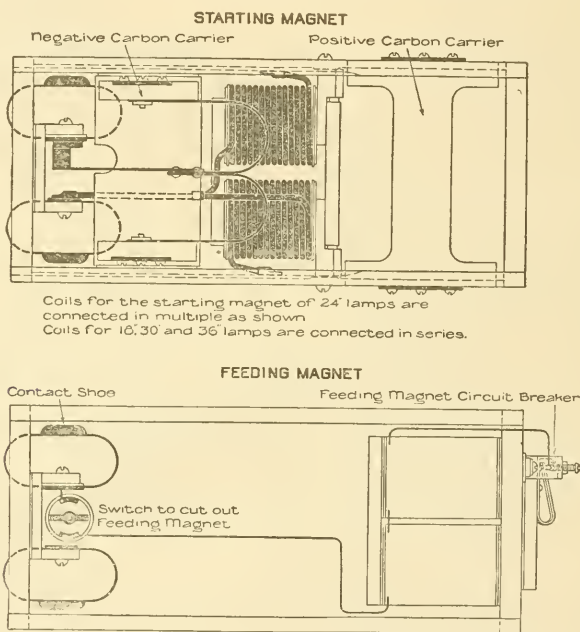 STARTING MAGNET
Negative Carbon Carrier
Positive Carbon Carrier
Coils for the starting magnet of 24" lamps are
connected in multiple as shown
Coils for 18", 30" and 36" lamps are connected in series.
FEEDING MAGNET
Contact Shoe
Feeding Magnet Circuit Breaker
Switch to cut out
Feeding Magnet